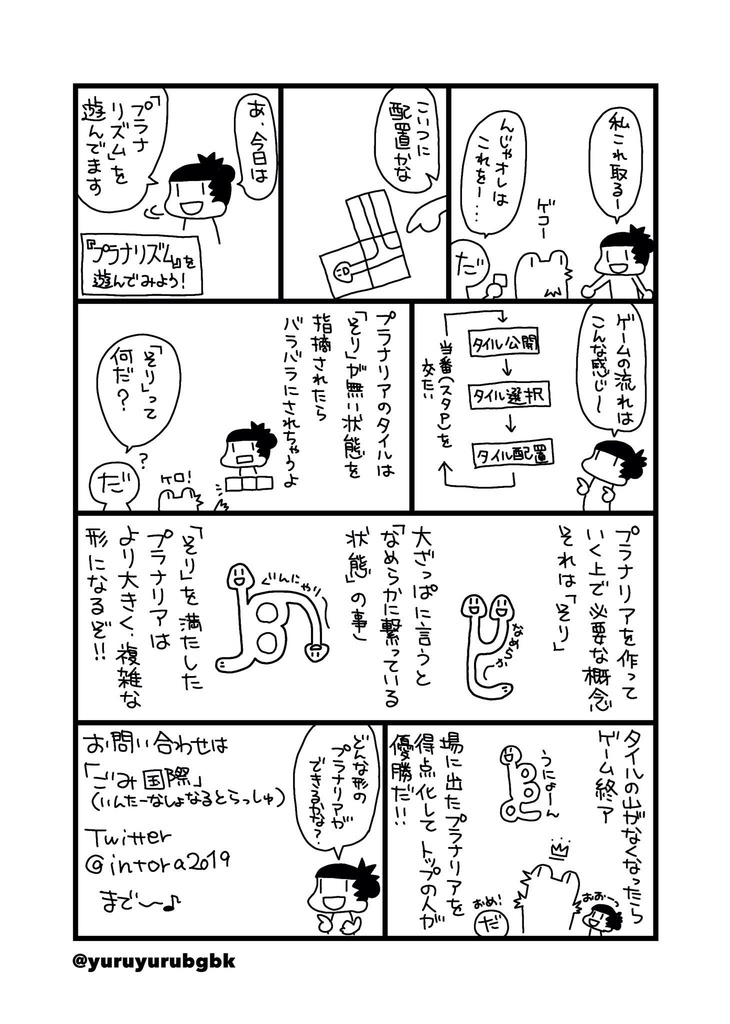 私これ取るー
ゲコー
んじゃオレは
これをー…
だ
こいつに
配置かな
あ、今日は
「プラナ
リズム」を
遊んでます
『プラナリズム』を
遊んでみよう!
ゲームの流れは
こんな感じ〜
タイル公開
タイル選択
タイル配置
当番(スタP)を
交代
プラナリアのタイルは
「そり」が無い状態を
指摘されたら
バラバラにされちゃうよ
「そり」って
何だ?
?
だ
ケロ!
プラナリアを作って
いく上で必要な概念
それは「そり」
なめらか
大ざっぱに言うと
「なめらかに繋っている
状態」の事
ぐんにゃり
「そり」を満たした
プラナリアは
より大きく、複雑な
形になるぞ!!
タイルの山がなくなったら
ゲーム終了
うによーん
場に出たプラナリアを
得点化してトップの人が
優勝だ!!
おおーっ
おめ!
だ
どんな形の
プラナリアが
できるかな?
お問い合わせは
「ごみ国際」
(いんたーなしょなるとらっしゅ)
Twitter
@intora2019
まで〜♪
@yuruyurubgbk